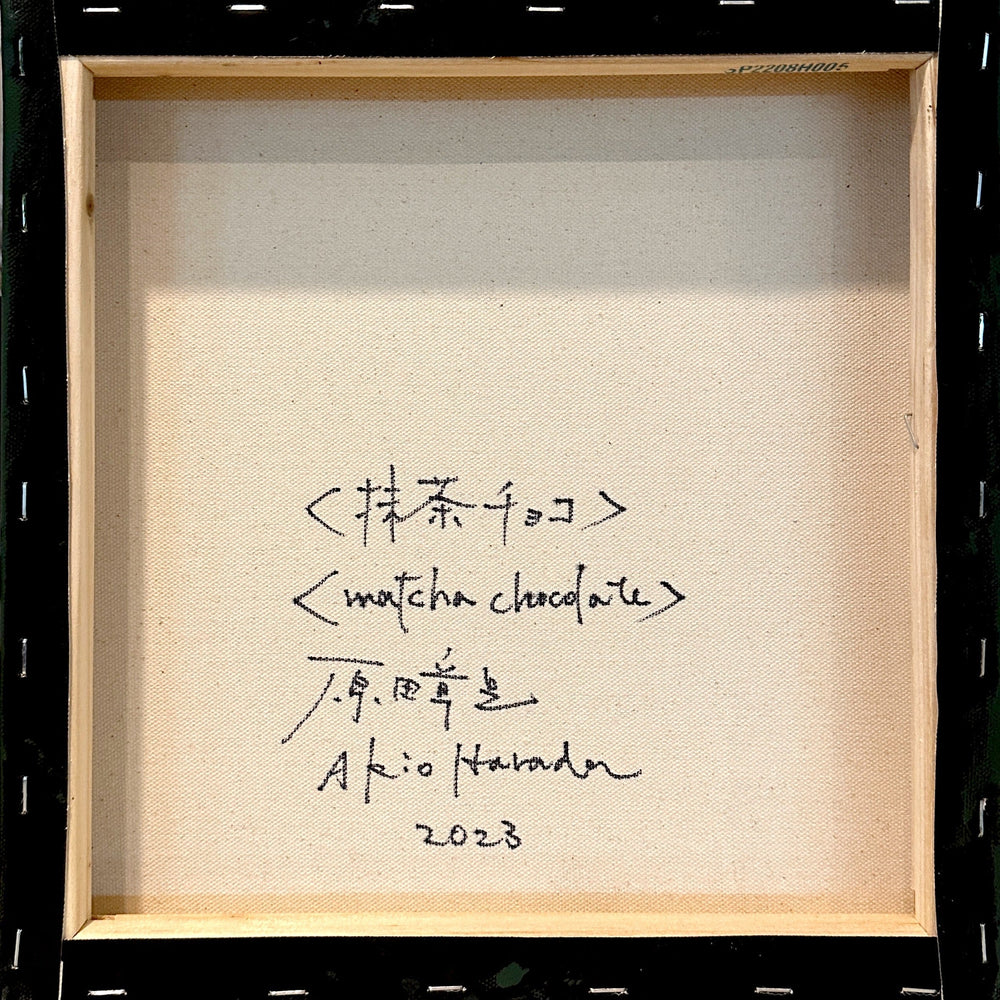 SP2208H005
<抹茶チョコ>
<matcha chocolate>
原田章生
Akio Harada
2023